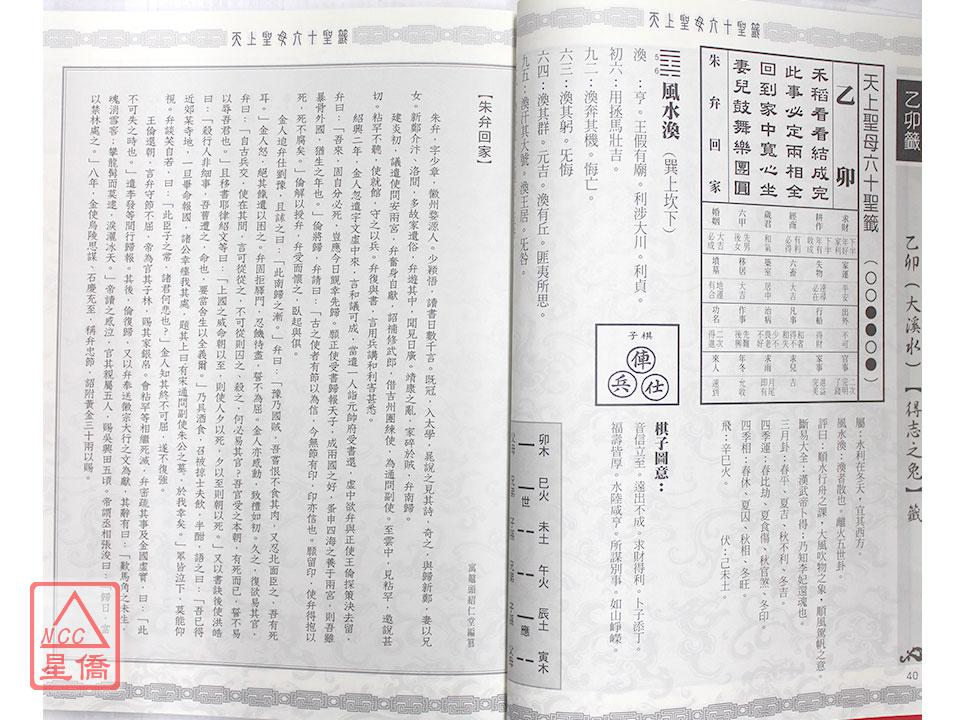 乙卯籤
乙卯(大溪水)【得志之兔】籤
40
天上聖母六十聖籤
天上聖母六十聖籤(○○●●○●)
乙 卯
禾稻看看結成完
此事必定兩相全
回到家中寬心坐
妻兒鼓舞樂團圓
朱弁回家
屬:水利在冬天,宜其西方。
風水渙:渙者散也。離火五世卦。
評曰:順水行舟之課,大風吹物之象,順風駕帆之意。
斷易大全:漢武帝卜得;乃知李妃還魂也。
三月卦:春平、夏吉、秋不利、冬吉。
四季運:春比劫、夏食傷、秋官煞、冬印。
四季相:春休、夏囚、秋相、冬旺。
飛:辛巳火。 伏:己未土。
56
風水渙(巽上坎下)
渙:亨。王假有廟。利涉大川。利貞。
初六:用拯馬壯吉。
九二:渙奔其機。悔亡。
六三:渙其躬。旡悔
六四:渙其群。元吉。渙有丘。匪夷所思。
九五:渙汗其大號。渙王居。旡咎。
棋子
俥
兵 仕
棋子圖意:
音信立至。遠出不成。求財得利。卜子添丁。
福壽皆厚。水陸咸亨。所謀別事。如山崢嶸。
卯木 巳火 未土 午火 辰土 寅木
世 應
天上聖母六十聖籤
【朱弁回家】
寓鼇頭紹仁堂編纂
朱弁,字少章,徽州婺源人。少穎悟,讀書日數千言。既冠,入太學,晁說之見其詩,奇之,與歸新鄭,妻以兄
女。新鄭介汴、洛間,多故家遺俗,弁遊其中,聞見日廣。靖康之亂,家碎於賊,弁南歸。
建炎初,議遣使問安兩宮,弁奮身自獻,詔補修武郎,借吉州團練使,為通問副使。至雲中,見粘罕,邀說甚
切。粘罕不聽,使就館,守之以兵。弁復與書,言用兵講和利害甚悉。
紹興二年,金人忽遣宇文虛中來,言和議可成,當遣一人詣元帥府受書還。虛中欲弁與正使王倫探策決去留,
弁曰:「吾來,固自分必死,豈應今日覬幸先歸。願正使受書歸報天子,成兩國之好,蚤申四海之養于兩宮,則吾雖
暴骨外國,猶生之年也。」倫將歸,弁請曰:「古之使者有節以為信,今無節有印,印亦信也。願留印,使弁得抱以
死,死不腐矣。」倫解以授弁,弁受而懷之,臥起與俱。
金人迫弁仕劉豫,且訹之曰:「此南歸之漸。」弁曰:「豫乃國賊,吾嘗恨不食其肉,又忍北面臣之,吾有死
耳。」金人怒,絕其餼遺以困之。弁固拒驛門,忍饑待盡,誓不為屈。金人亦感動,致禮如初。久之,復欲易其官,
曰:「自古兵交,使在其間,言可從從之,不可從則囚之、殺之,何必易其官?吾官受之本朝,有死而已,誓不易
以辱吾君也。」且移書耶律紹文等曰:「上國之威命朝以至,則使人夕以死,夕以至則朝以死。」又以書訣後使洪皓
曰:「殺行人非細事,吾曹遭之,命也,要當舍生以全義爾。」乃具酒食,召被掠士夫飲,半酣,語之曰:「吾已得
近郊某寺地,一旦畢命報國,諸公幸瘞我其處,題其上曰有宋通問副使朱公之墓,於我幸矣。」眾皆泣下,莫能仰
視。弁談笑自若,曰:「此臣子之常,諸君何悲也?」金人知其終不可屈,遂不復強。
王倫還朝,言弁守節不屈,帝為官其子林,賜其家銀帛。會粘罕等相繼死滅,弁密疏其事及金國虛實,曰:「此
不可失之時也。」遣李發等間行歸報。其後,倫復歸,又以弁奉送徽宗大行之文為獻,其辭有曰:「歎馬角之未生,
魂消雪窖;攀龍髯而莫逮,淚灑冰天。」帝讀之感泣,官其親屬五人,賜吳興田五頃。帝謂丞相張浚曰:「歸日,當
以禁林處之。」八年,金使烏陵思謀、石慶充至,稱弁忠節,詔附黃金三十兩以賜。
NCC
星僑